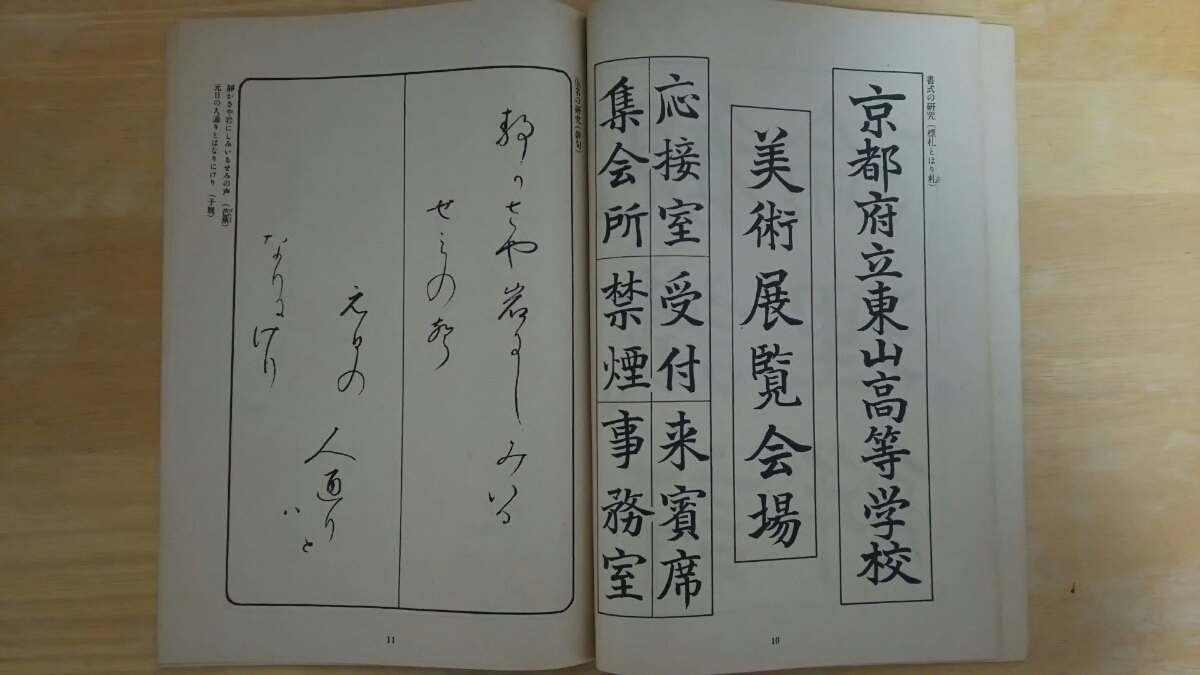 書式の研究（標札とはり札）
京都府立東山高等学校
美術展覧会場
応接室
受付
来賓席
集会所
禁煙
事務室
10
仮名の研究（俳句）
静かさや岩にしみいる
せみの声
元日の人通りとハ
なりにけり
静かさや岩にしみいるせみの声（芭蕉）
元日の人通りとはなりにけり（子規）
11